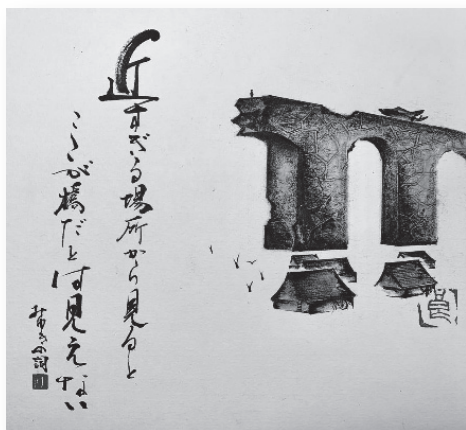 近すぎる場所から見ると
ここが橋だとは見えない